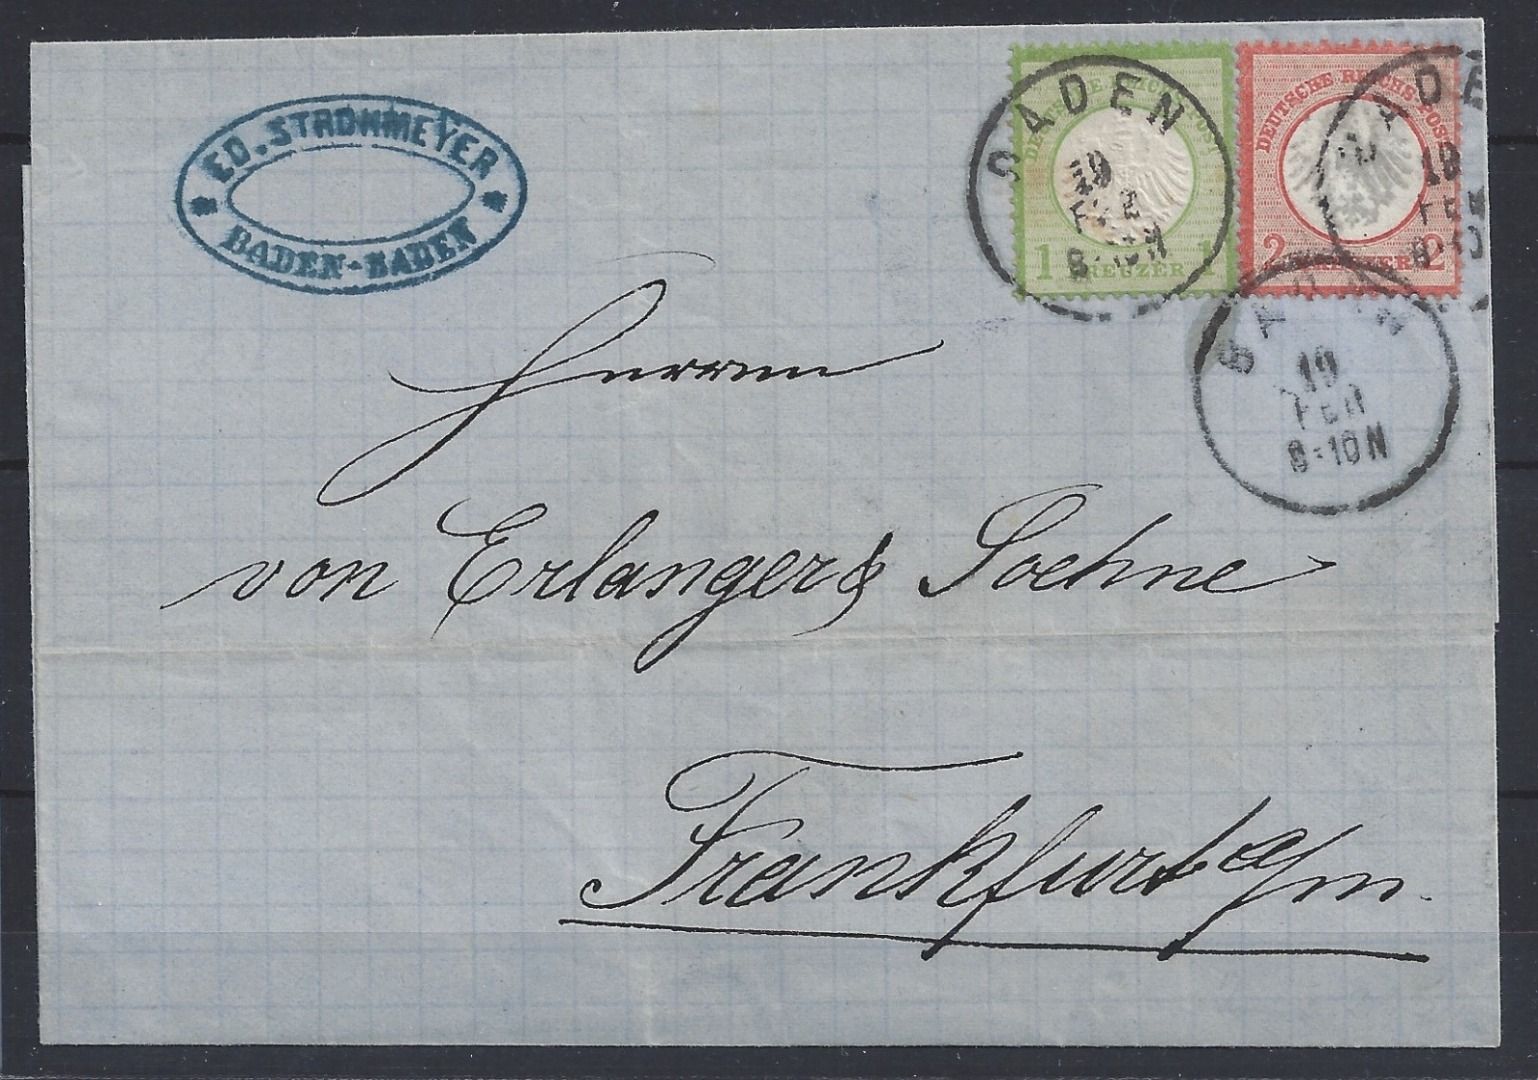 ED. STROHMEYER
* *
BADEN-BADEN
BADEN
19
FEB
8-10N
DEUTSCHE REICHS-POST
1 KREUZER 1
BADEN
19
FEB
8-10
DEUTSCHE REICHS-POST
2 KREUZER 2
BADEN
19
FEB
8-10N
Herren
von Erlanger & Soehne
Frankfurt a/m.